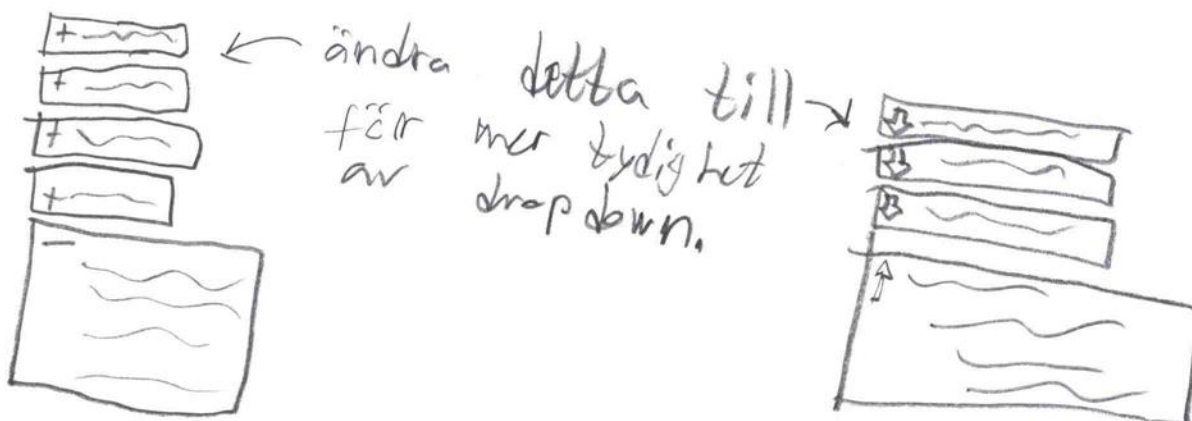 ändra detta till
för mer tydighet
av dropdown.